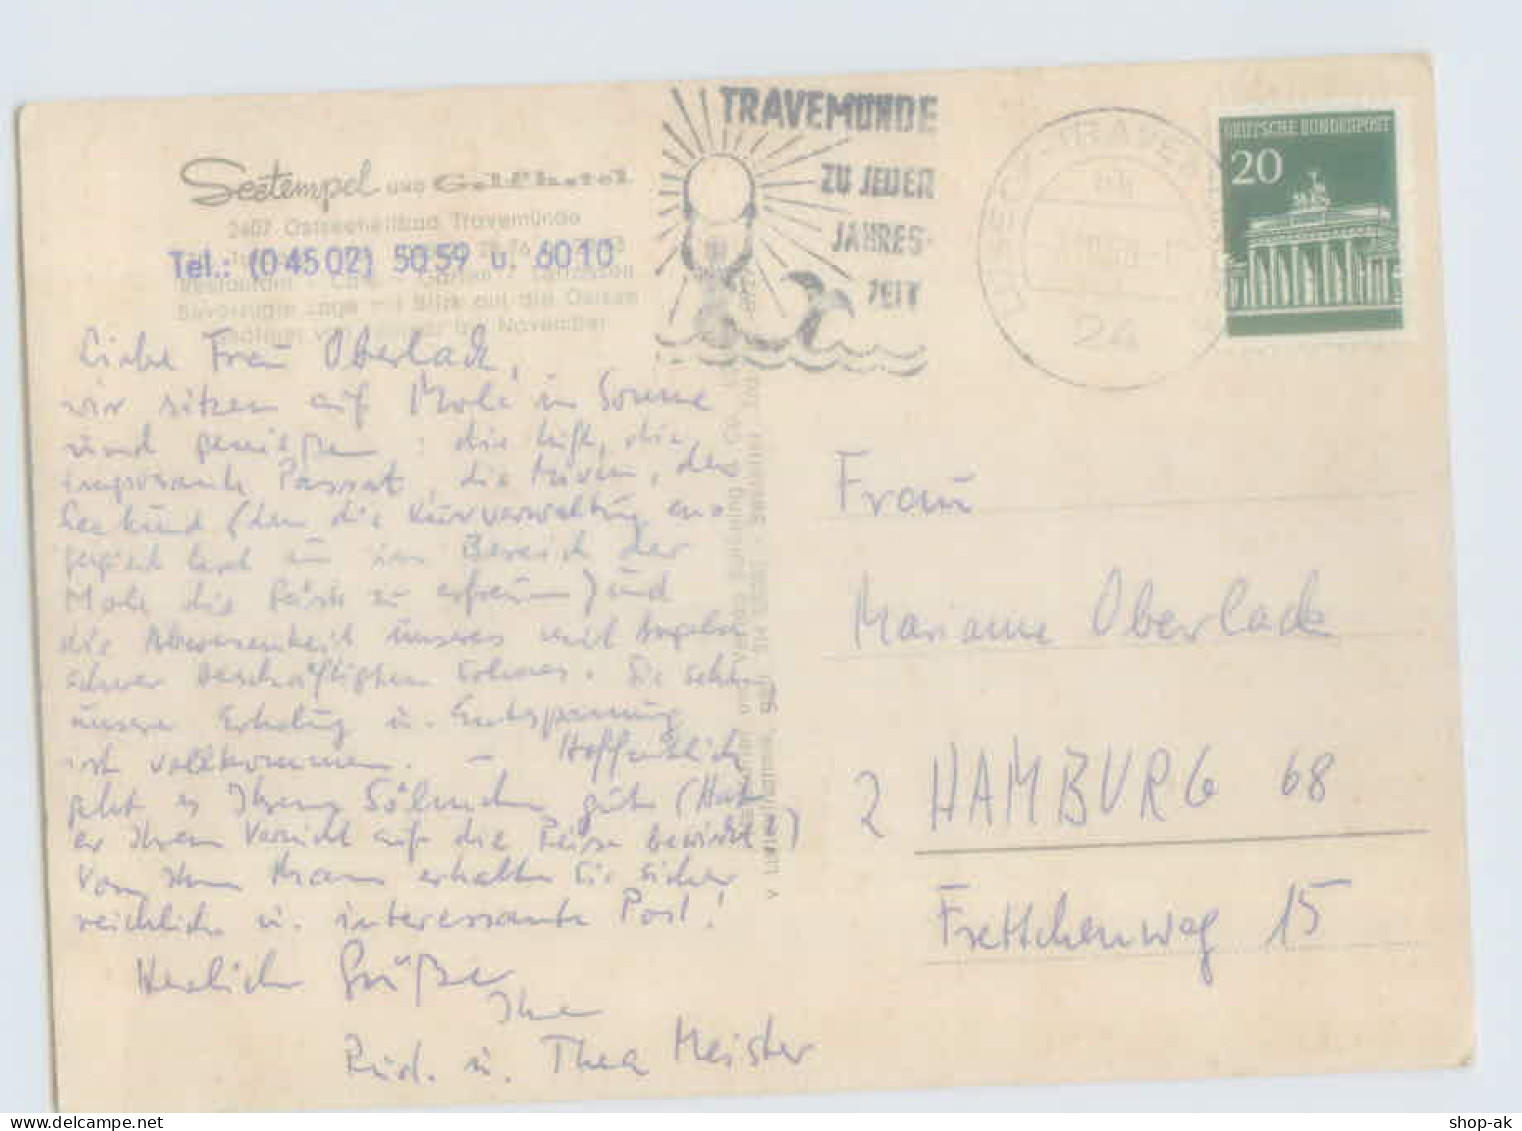 Seetempel UND Golfhotel
2407 Ostseeheilbad Travemünde
Tel.: (04502) 5059 u. 6010
Restaurant - Café - Garten - Tanzessen
Bevorzugte Lage mit Blick auf die Ostsee
November
TRAVEMÜNDE
ZU JEDER
JAHRES-
ZEIT
24
DEUTSCHE BUNDESPOST
20
Liebe Frau Oberlack,
wir sitzen auf Mole in Sonne
und genießen: die Luft, die
imposante Passat, die Möven, den
Seehund (den die Kurverwaltung aus
im Bereich der
Mole die Gäste zu erfreuen) und
die Abwesenheit unseres mit Angeln
schwer beschäftigten Sohnes. Sie sehen,
unsere Erholung u. Entspannung
ist vollkommen. - Hoffentlich
geht es Ihrem Söhnchen gut (Hat
er Ihren Verzicht auf die Reise bewirkt?)
Von Ihrem Mann erhalten Sie sicher
reichlich u. interessante Post!
Herzliche Grüße
Ihre
Rud. u. Thea Meister
Frau
Marianne Oberlack
2 HAMBURG 68
Frettchenweg 15
shop-ak